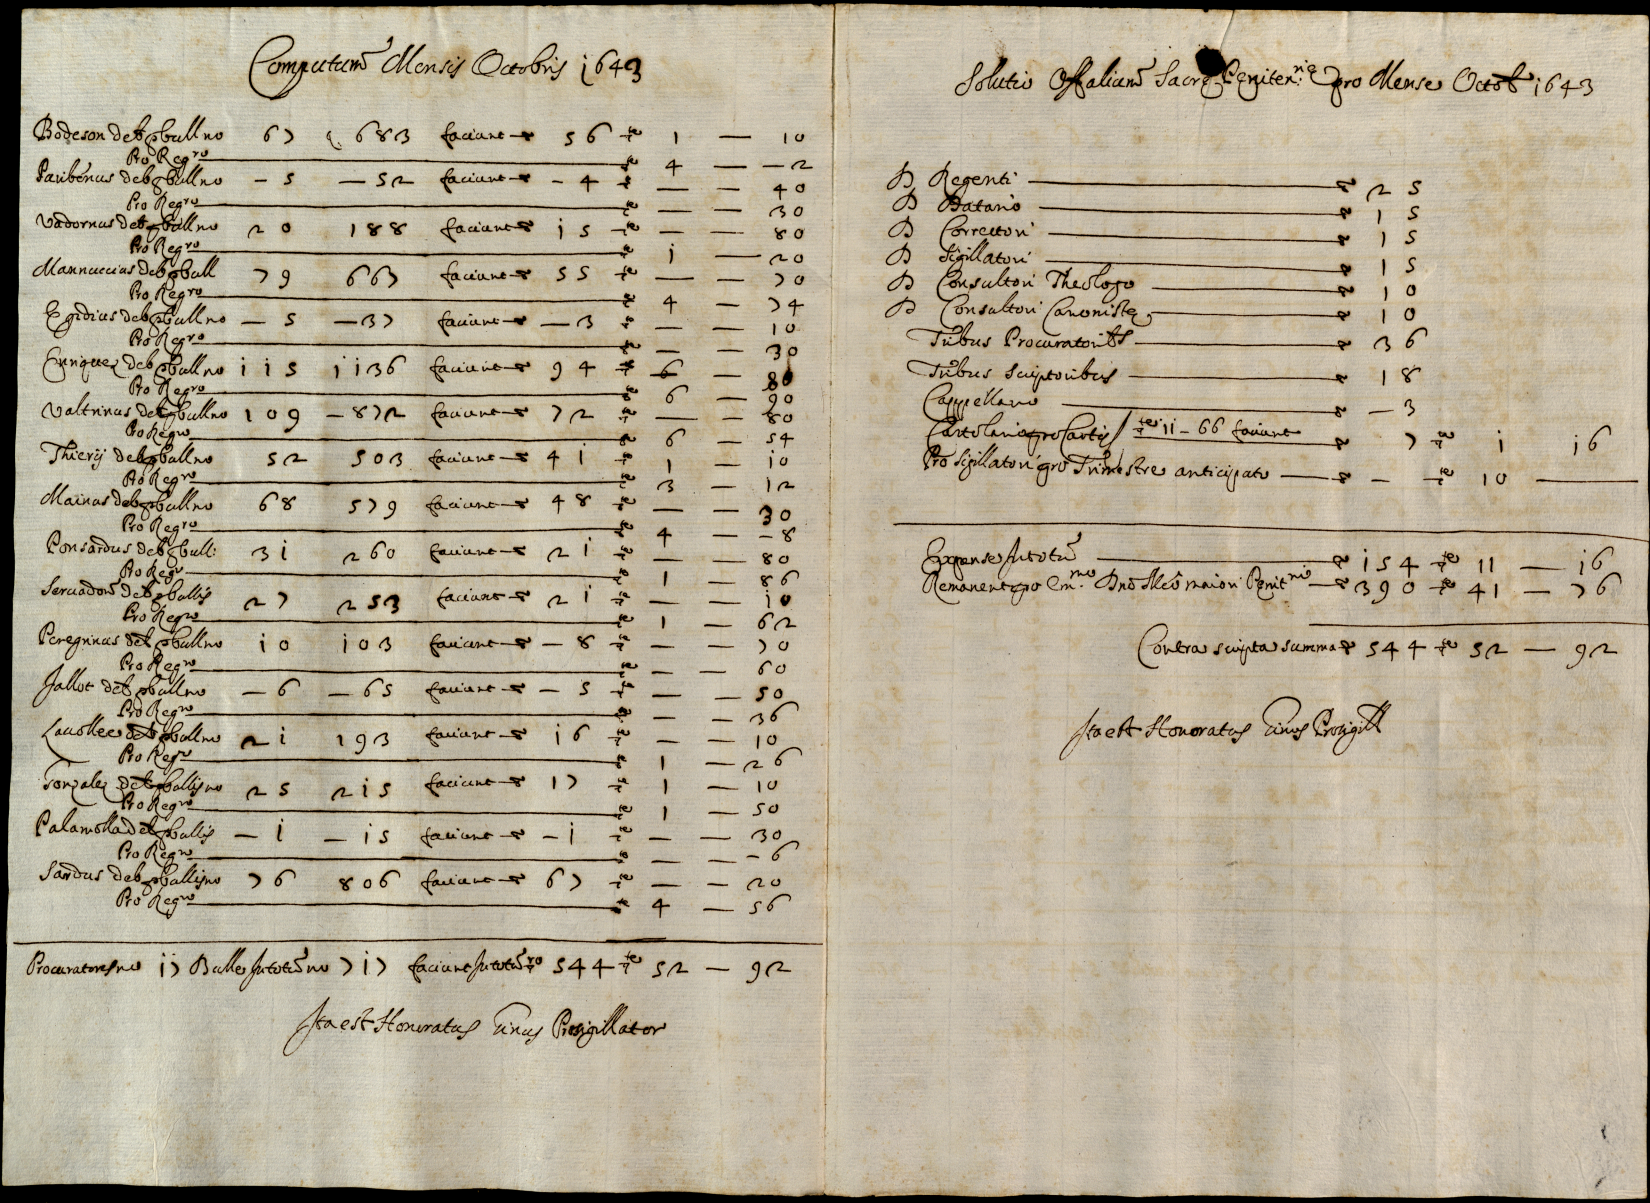 Computum Mensis Octobris 1643
Bodeson deb pro bull no 67 683 faciunt 56 1 — 10
Pro Regro 4 — – 2
Paribenus deb pro bull no – 5 – 52 faciunt – 4 — — 40
Pro Regro — — 30
Vadornus deb pro bull no 20 188 faciunt 15 — — 80
Pro Regro 1 — 20
Mannuccius deb pro bull 79 667 faciunt 55 — — 70
Pro Regro 4 — 74
Egidius deb pro bull no – 5 – 37 faciunt – 3 — — 10
Pro Regro — — 30
Enriquez deb pro bull no 115 1136 faciunt 94 — 80
Pro Regro 6 — 90
Valtrinus deb pro bull no 109 – 872 faciunt 72 — — 80
Pro Regro 6 — 54
Thierij deb pro bull no 52 503 faciunt 41 1 — 10
Pro Regro 3 — 12
Mainus deb pro bull no 68 579 faciunt 48 — — 30
Pro Regro 4 — – 8
Ponsardus deb pro bull: 31 260 faciunt 21 — — 80
Pro Regro 1 — 86
Servadom deb pro bullis 27 253 faciunt 21 — — 10
Pro Regro 1 — 62
Peregrinus deb pro bull no 10 103 faciunt – 8 — — 70
Pro Regro — — 60
Jallot deb pro bull no – 6 – 65 faciunt – 5 — — 50
Pro Regro — — 36
Lavollee deb pro bull no 21 193 faciunt 16 — — 10
Pro Regro 1 — 26
Gonzalez deb pro bullis no 25 215 faciunt 17 1 — 10
Pro Regro 1 — 50
Palamolla deb pro bullis – 1 – 15 faciunt – 1 — — 30
Pro Regro — — – 6
Sardus deb pro bullis no 76 806 faciunt 67 — — 20
Pro Regro 4 — 56
Procuratores no 17 Bulle in totum no 717 faciunt in totum 544 52 — 92
Ita est Honoratus Prosigillator
Solutio Offalium Sacre Penitenrie pro Mense Octob 1643
D Regenti 25
D Datario 15
D Correctori 15
D Sigillatori 15
D Consultori Theologo 10
D Consultori Canoniste 10
Tribus Procuratoribus 36
Tribus Scriptoribus 18
Cappellano – 3
Cartolario pro Cartis 11 – 66 faciunt 7 1 16
Pro Sigillatori pro Trimestre anticipato – 10 —
Expense in totum 154 11 — 16
Remanent pro Emmo Dno Meo maiori Penitrio 390 41 — 76
Contra scripta summa 544 52 — 92
Ita est Honoratus Prosigill